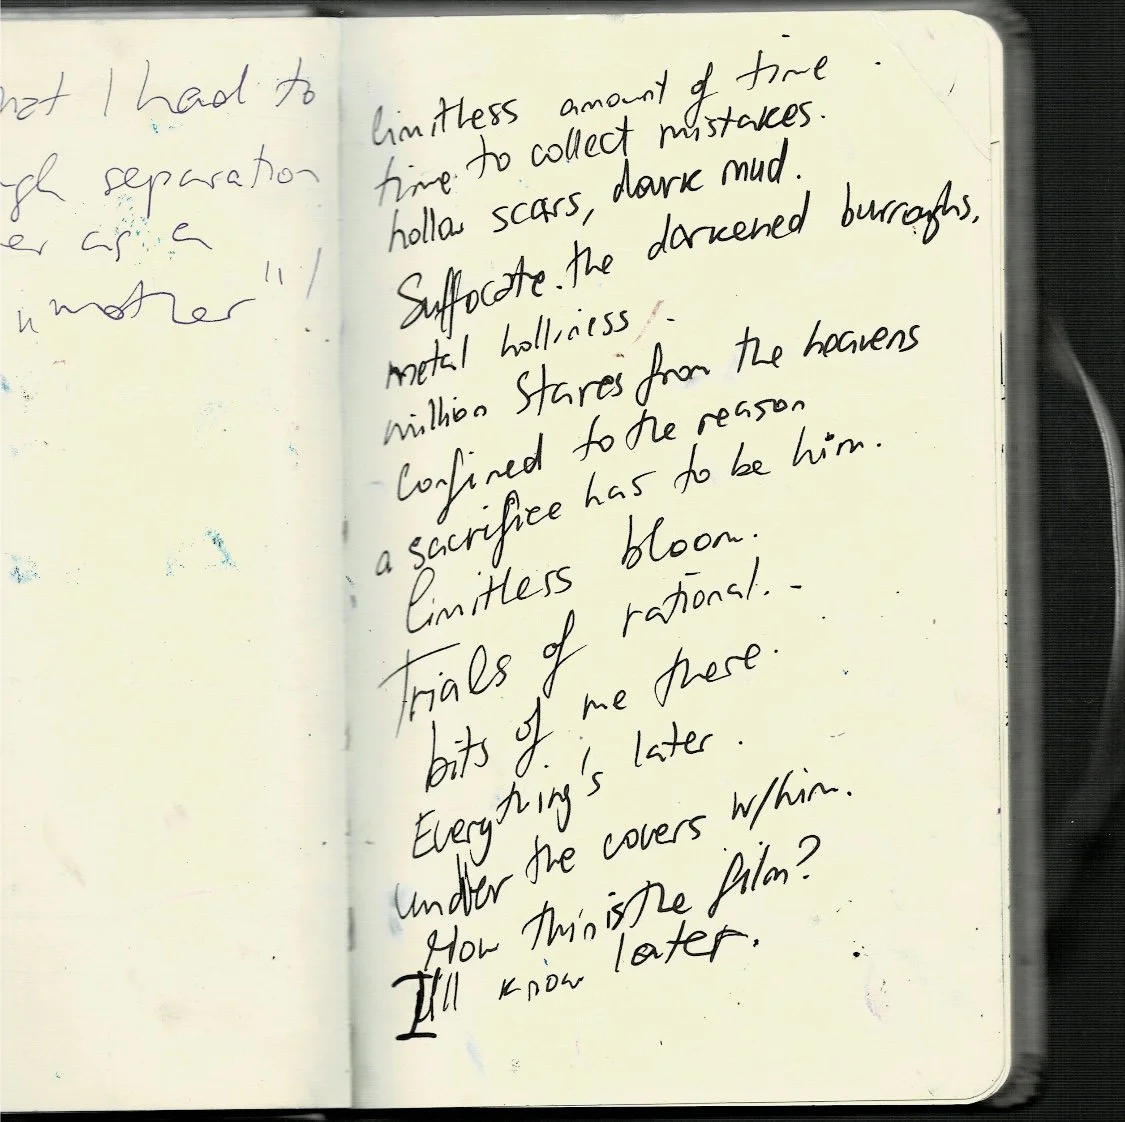 not I had to
ugh separation
er as a
"mother" /
limitless amount of time .
time to collect mistakes.
hollow scars, dark mud.
Suffocate the darkened burroughs.
metal holliness .
million Stares from the heavens
confined to the reason
a sacrifice has to be him.
limitless bloom.
Trials of rational. -
bits of me there.
Everything's later .
under the covers w/him.
How thin is the film?
I'll know later.